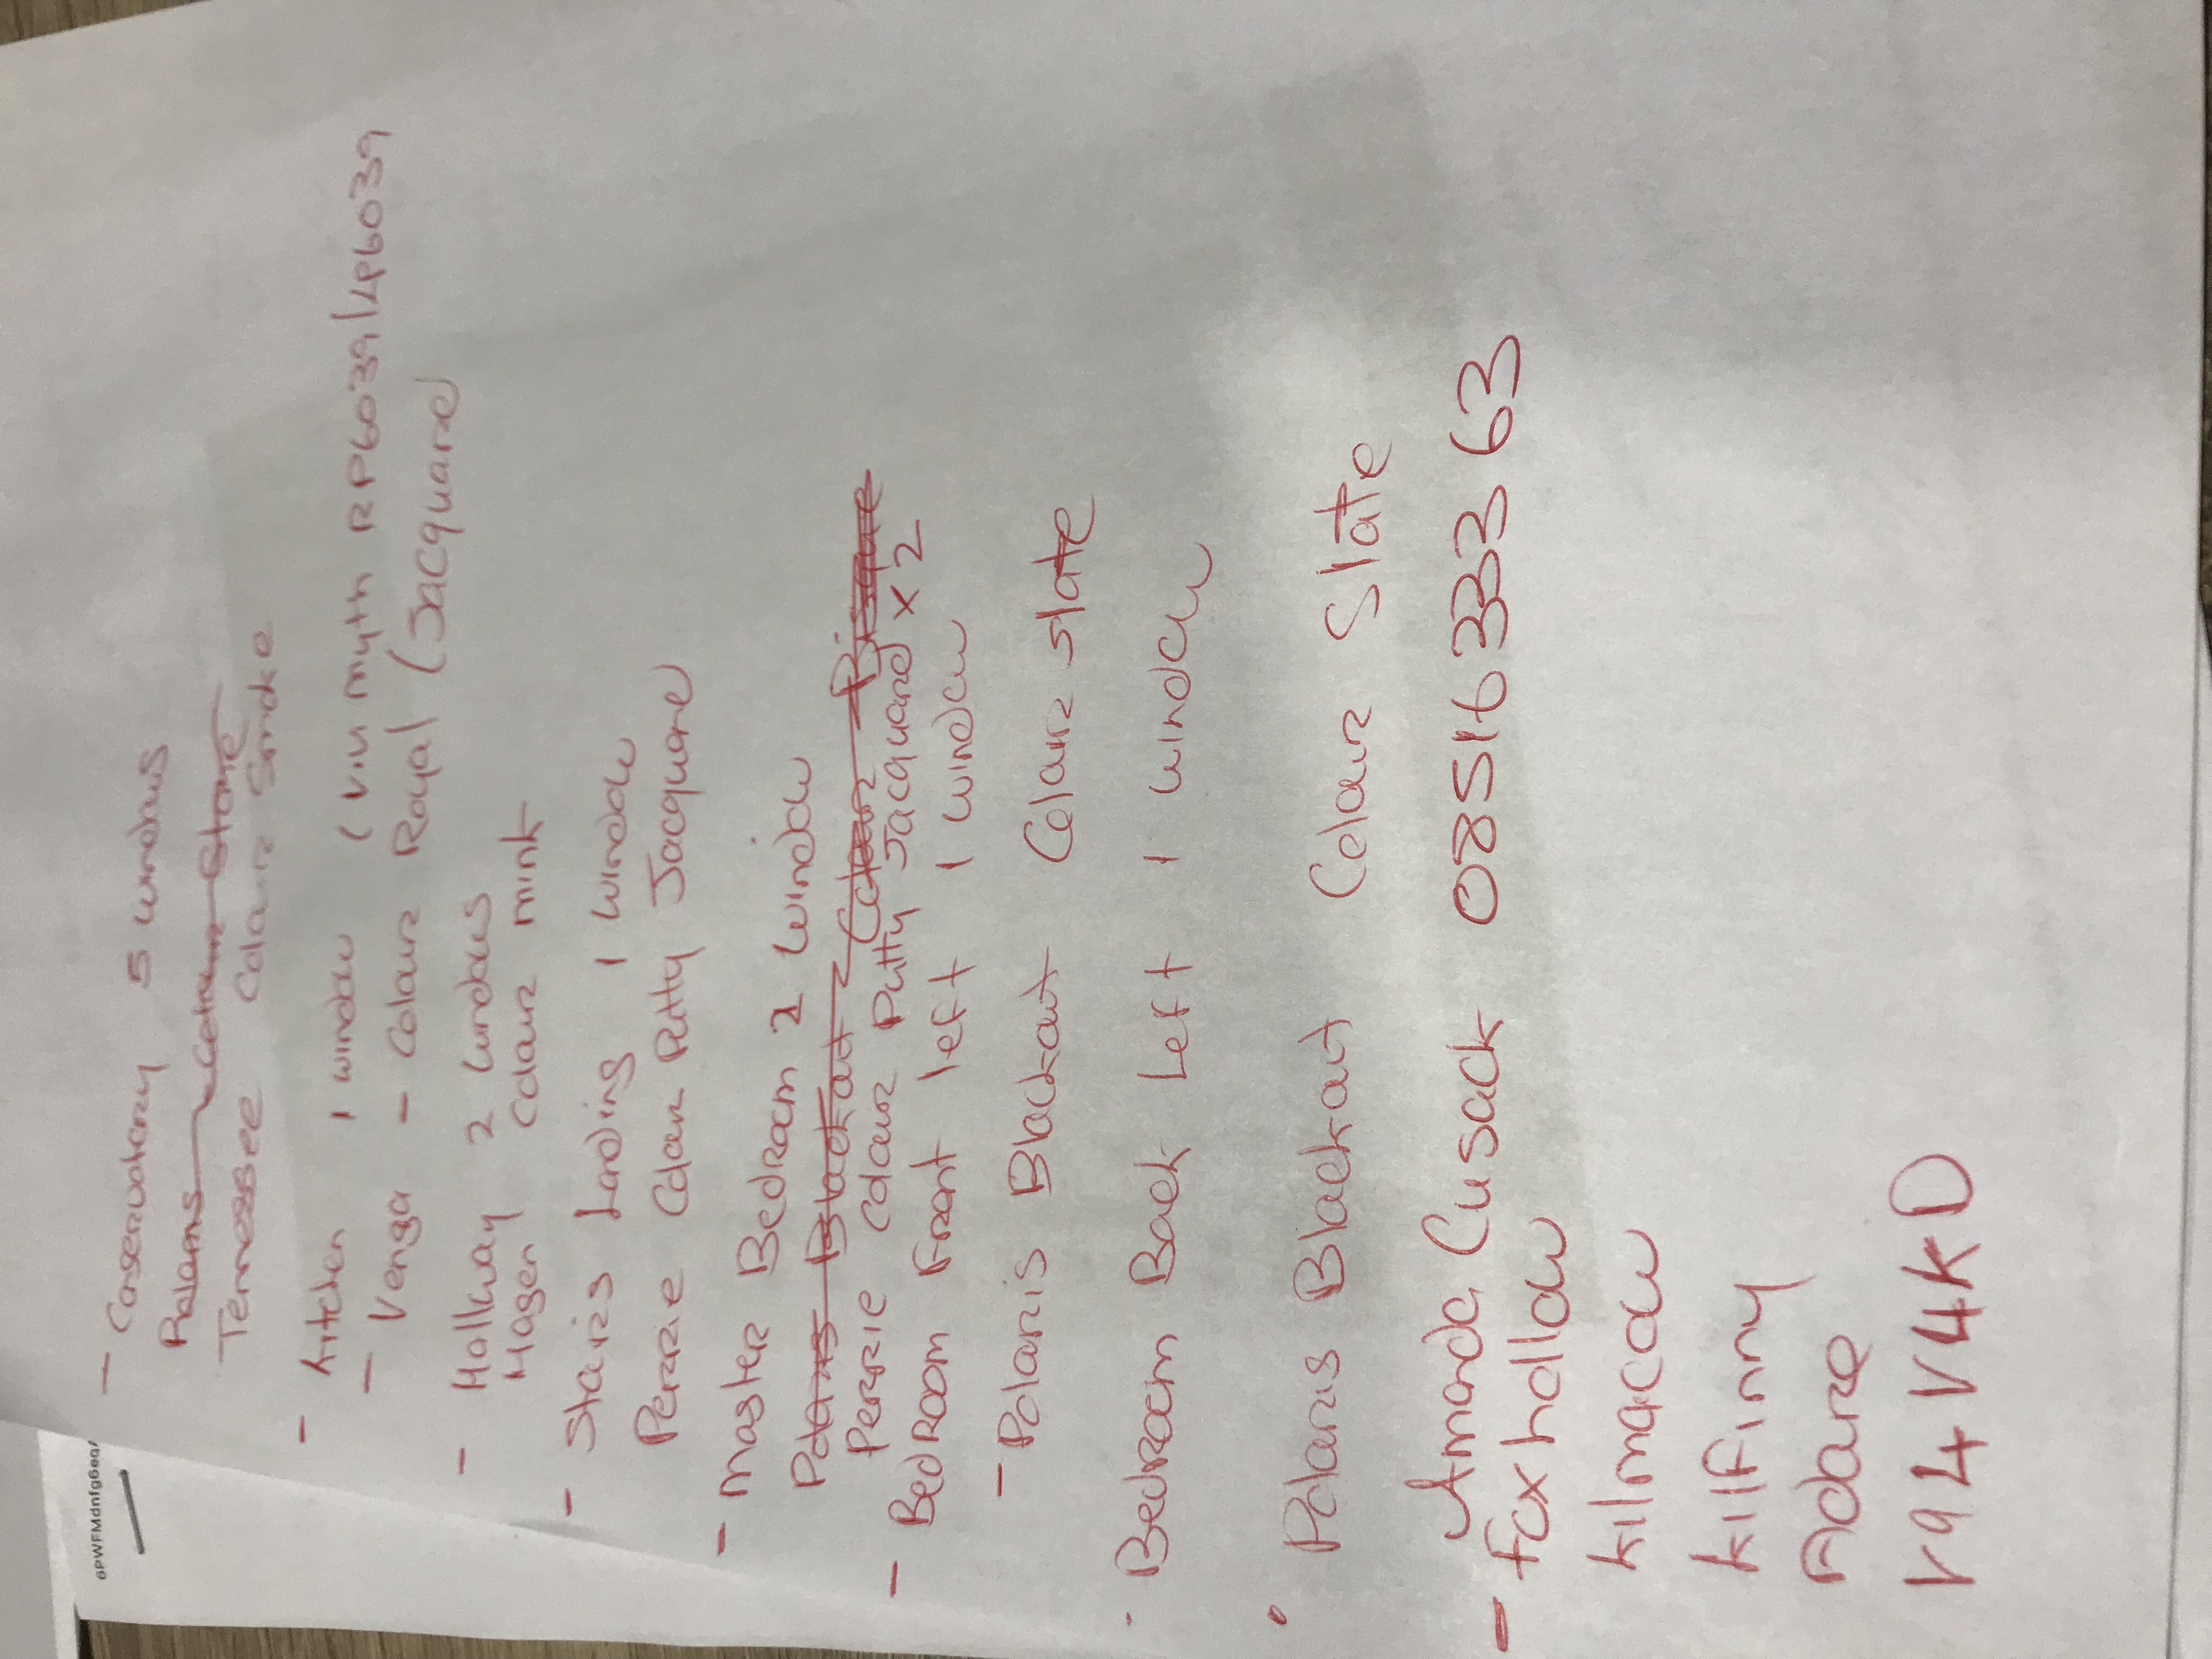 - Conservatory 5 windows
Polaris Colour Stone
Tennessee Colour Smoke
- kitchen 1 window (Vlu myth RP6039/LP6039
- Venga - Colour Royal (Jacquard
- Hallway 2 windows
Hagen Colour mint
- Stairs Landing 1 window
Perrie Colour Putty Jacquard
- master Bedroom 2 window
Polaris Blackout Colour Bisque
Perrie Colour Putty Jacquard x 2
- Bedroom Front left 1 window
- Polaris Blackout Colour slate
. Bedroom Back Left 1 window
. Polaris Blackout Colour Slate
Amanda Cusack 0851633363
- foxhollow
kilmacow
kilfinny
Adare
V94 V4KD
6PWFMdnfg6eq